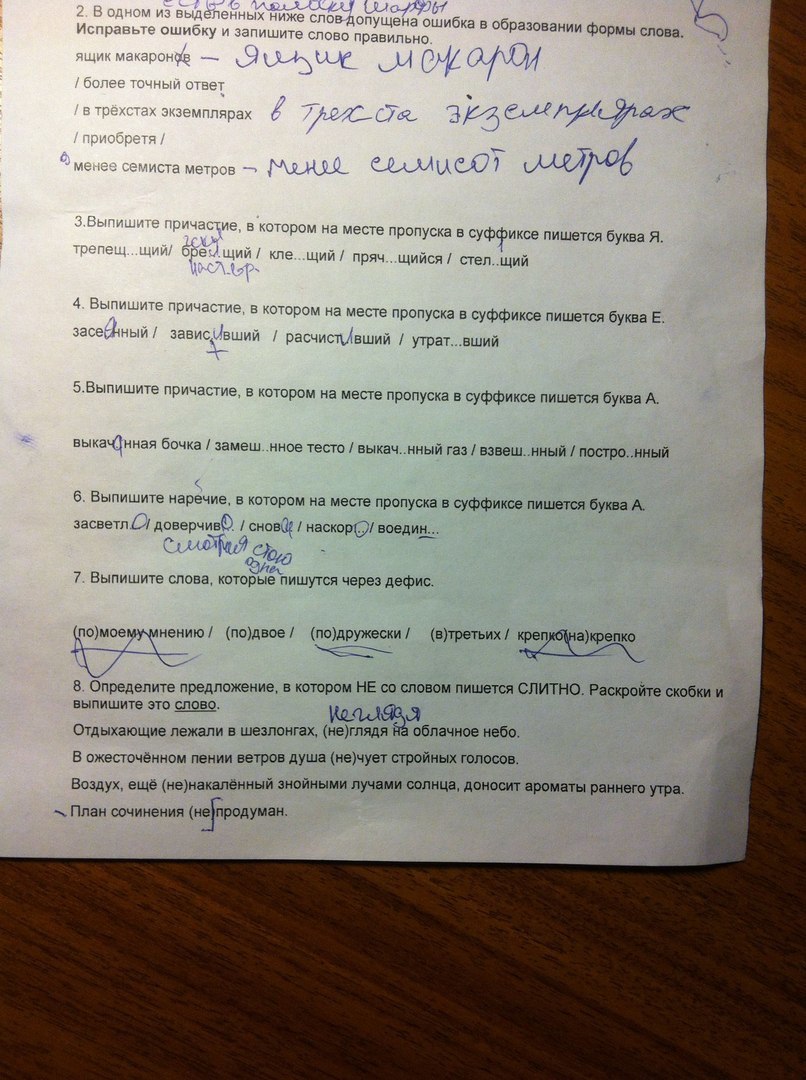 есть в полоску шарфы
2. В одном из выделенных ниже слов допущена ошибка в образовании формы слова.
Исправьте ошибку и запишите слово правильно.
ящик макаронов – Ящик макарон
/ более точный ответ
/ в трёхстах экземплярах в трехста экземплярах
/ приобретя /
менее семиста метров – менее семисот метров
3.Выпишите причастие, в котором на месте пропуска в суффиксе пишется буква Я.
трепещ...щий/ бре...щий / кле...щий / пряч...щийся / стел..щий
4. Выпишите причастие, в котором на месте пропуска в суффиксе пишется буква Е.
засеянный / зависивший / расчистивший / утрат...вший
5.Выпишите причастие, в котором на месте пропуска в суффиксе пишется буква А.
выкачанная бочка / замеш..нное тесто / выкач..нный газ / взвеш..нный / постро..нный
6. Выпишите наречие, в котором на месте пропуска в суффиксе пишется буква А.
засветло/ доверчиво. / снова / наскоро/ воедин...
смотря стою
7. Выпишите слова, которые пишутся через дефис.
(по)моему мнению / (по)двое / (по)дружески / (в)третьих / крепко(на)крепко
8. Определите предложение, в котором НЕ со словом пишется СЛИТНО. Раскройте скобки и
выпишите это слово.
неглядя
Отдыхающие лежали в шезлонгах, (не)глядя на облачное небо.
В ожесточённом пении ветров душа (не)чует стройных голосов.
Воздух, ещё (не)накалённый знойными лучами солнца, доносит ароматы раннего утра.
План сочинения (не)продуман.